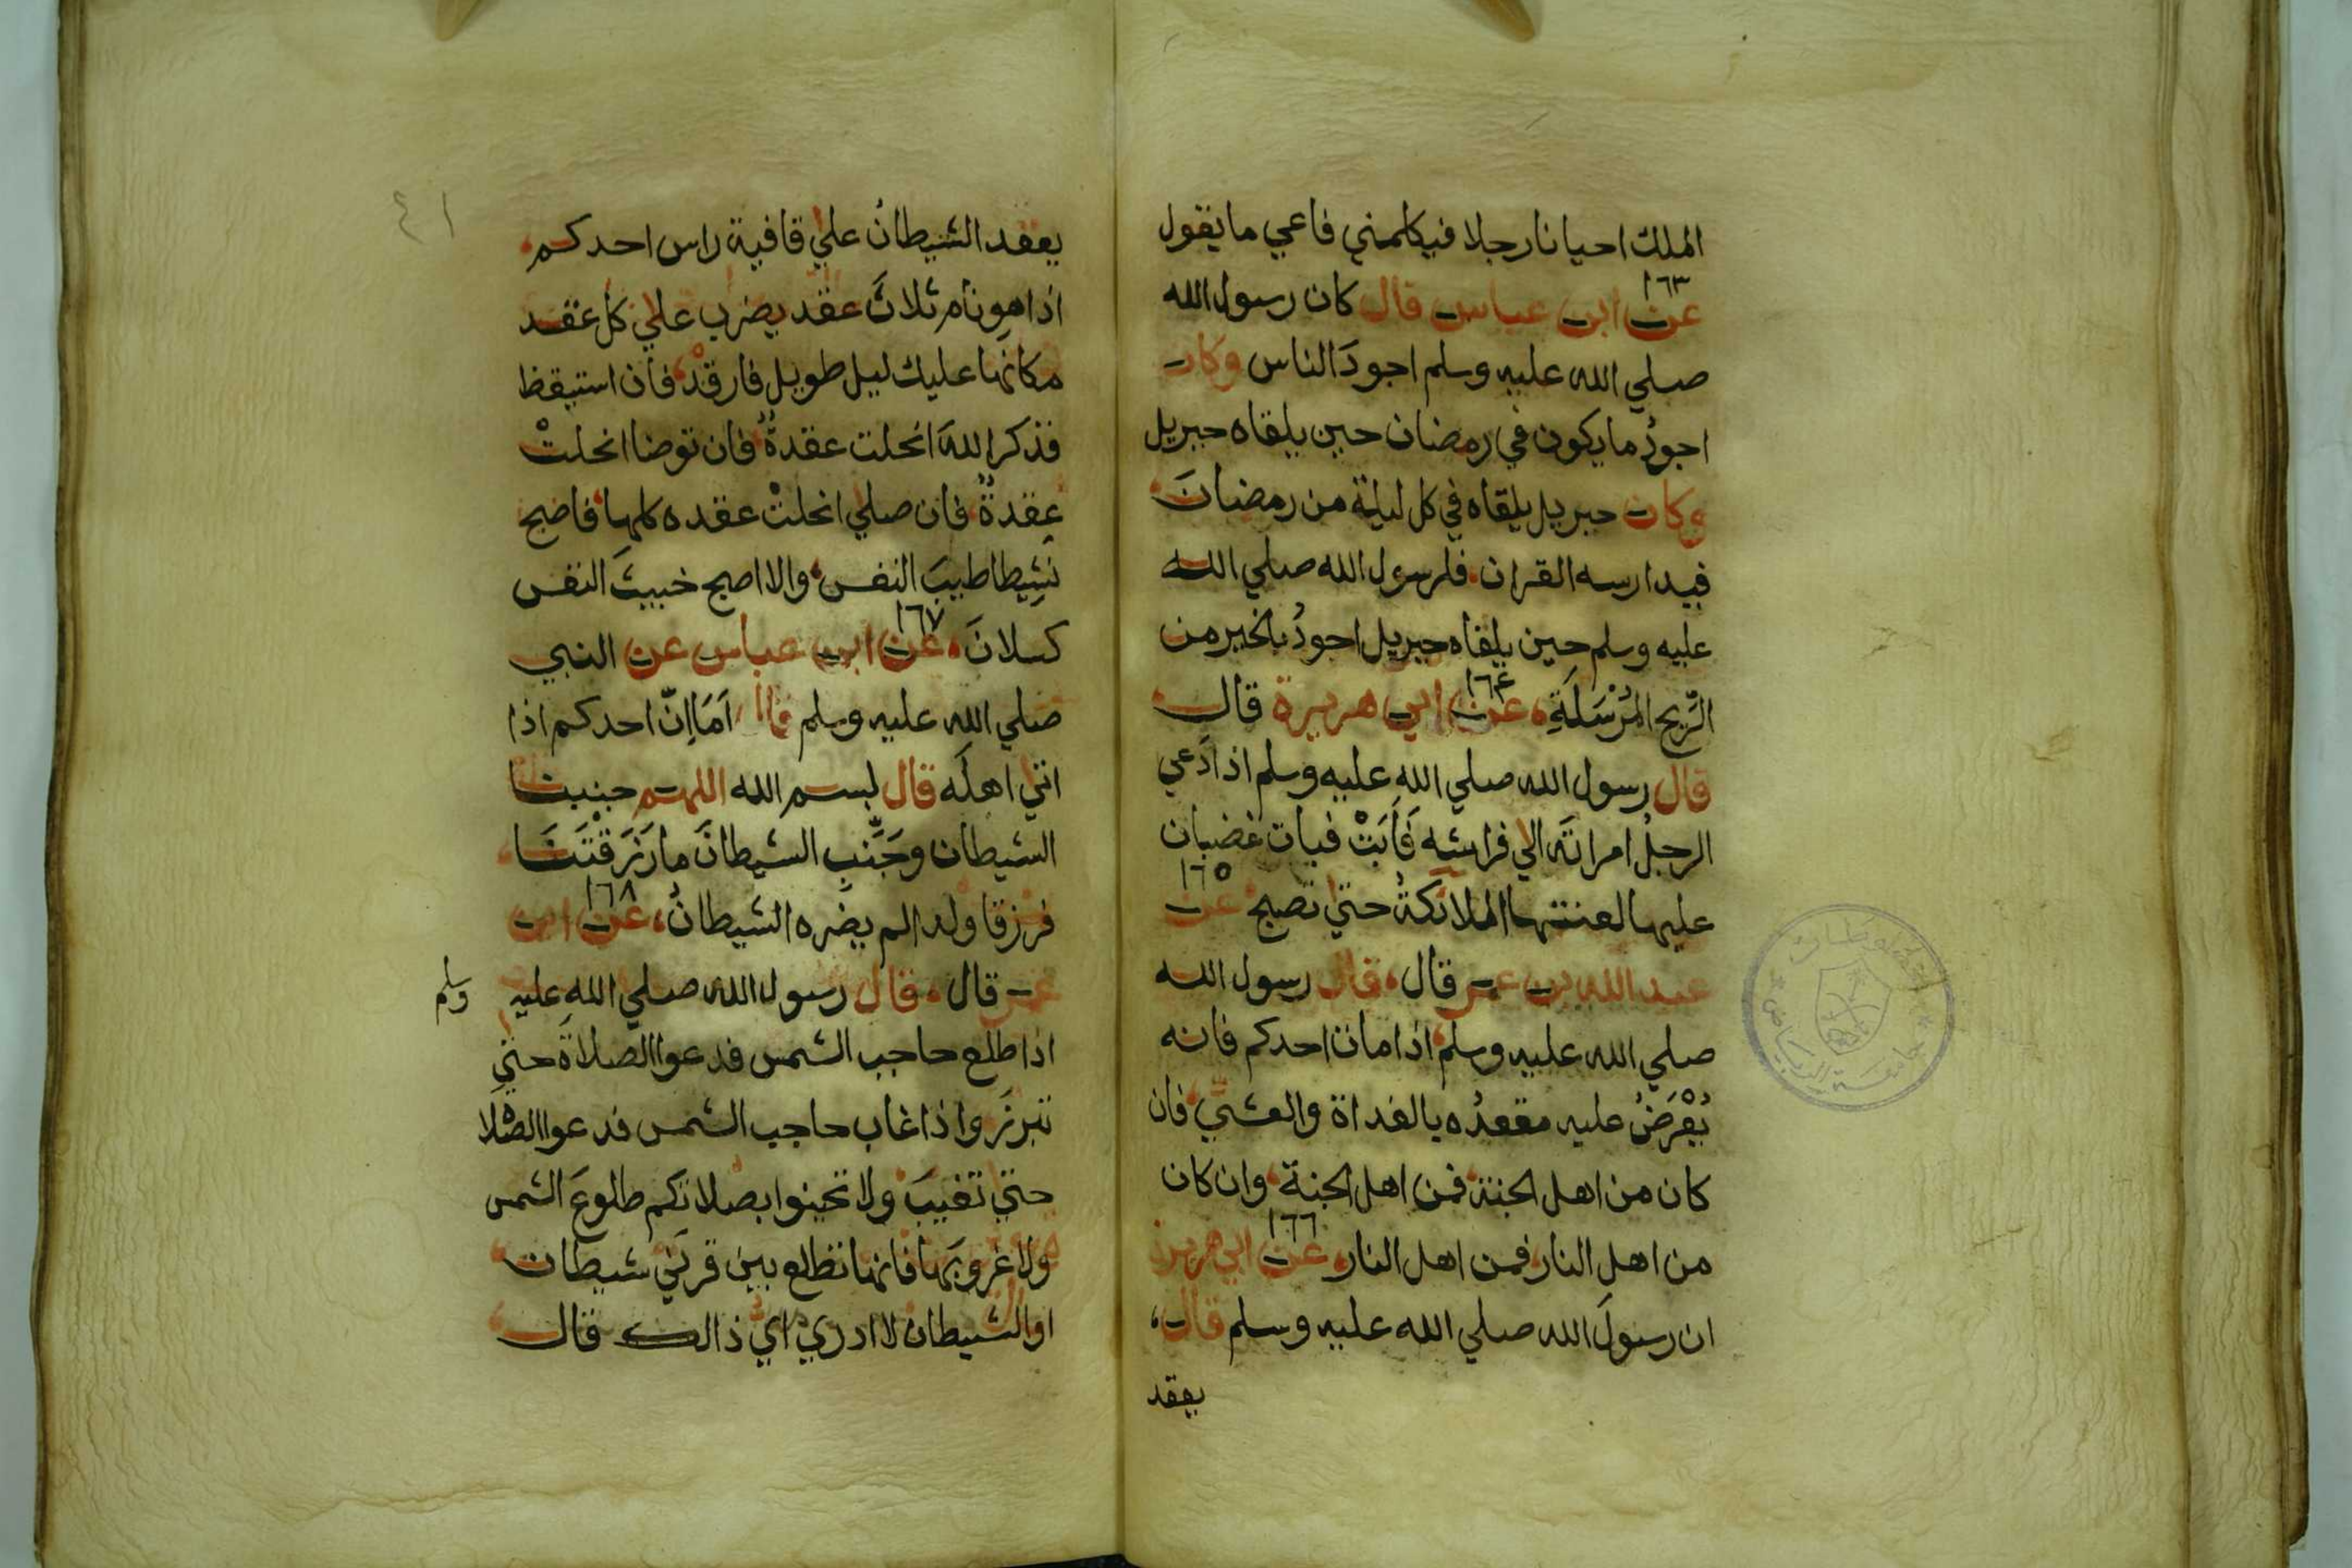 الملك احيانا رجلا فيكلمني فاعي ما يقول
١٦٣
عن ابن عباس قال كان رسول الله
صلي الله عليه وسلم اجودَ الناس وكان
اجودُ ما يكون في رمضان حين يلقاه جبريل
وكان جبريل يلقاه في كل ليلة من رمضانَ
فيدارسه القران فلرسول الله صلي الله
عليه وسلم حين يلقاه جبريل اجودُ بالخير من
الرّيح المُرْسَلَةِ، عن ١٦٤ ابي هريرة قال
قال رسول الله صلي الله عليه وسلم اذا دَعي
الرجلُ امراتَه الي فراشه فَأَبَتْ فبات غضبان
عليها لعنتها الملائكةُ حتي تصبح عن ١٦٥
عبد الله بن عمر قال، قال رسول الله
صلي الله عليه وسلم اذا مات احدكم فانه
يُعْرَضُ عليه مقعدُه بالغداة والعشيّ فان
كان من اهل الجنة فمن اهل الجنة وان كان
من اهل النار فمن اهل النار، عن ١٦٦ ابي هريرة
ان رسولَ الله صلي الله عليه وسلم قال،
يعقد
٤١
يعقد الشيطانُ علي قافية راس احدكم
اذا هو نام ثلاثَ عقد يضرب علي كل عقد
مكانها عليك ليل طويل فارقدْ، فان استيقظ
فذكر اللهَ انحلت عقدةٌ فان توضا انحلتْ
عقدةٌ فان صلي انحلتْ عقده كلها، فاصبح
نَشِيطا طيبَ النفس، والا اصبح خبيثَ النفس
كسلانَ، عن ١٦٧ ابن عباس عن النبي
صلي الله عليه وسلم قال اَمَا اِنّ احدكم اذا
اتي اهلَه قال بسم الله اللهم جنبنا
الشيطان وجَنّبِ الشيطانَ ما رَزَقْتَنَا
فرزقا ولدا لم يضره الشيطانُ، عن ١٦٨ ابن
عمر قال، قال رسول الله صلي الله عليه وسلم
اذا طلع حاجب الشمس فدعوا الصلاةَ حتي
تبرزَ واذا غاب حاجب الشمس فدعوا الصلا
حتي تغيبَ ولا تحينوا بصلاتكم طلوعَ الشمس
ولا غروبَها فانها تطلع بين قرنَيْ شيطان
او الشيطان لا ادري ايّ ذالك قال